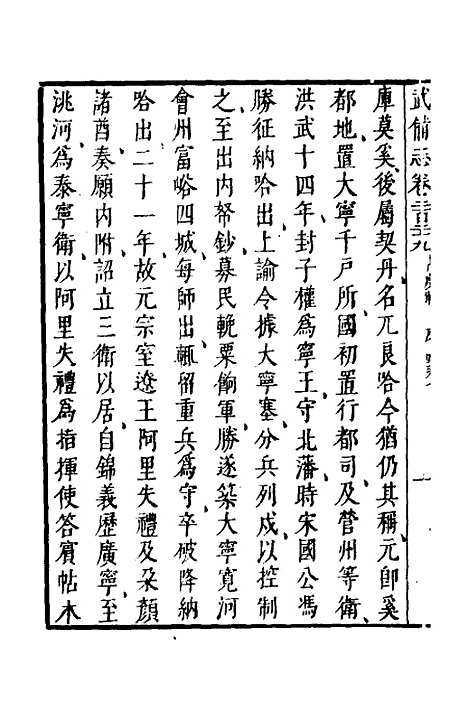 武備志卷二百二十九
庫莫奚、後屬契丹名兀良哈今猶仍其稱元卽奚
都地置大寧千戶所、國初置行都司及營州等衛、
洪武十四年封子權爲寧王、守北藩、時宋國公馮
勝征納哈出、上諭令據大寧塞、分兵列戍、以控制
之至出内帑鈔、募民輓粟餉軍、勝遂築大寧寬河
會州富峪四城、每師出、輒留重兵爲守、卒破降納
哈出二十一年、故元宗室遼王阿里失禮及朵顏
諸酋奏願内附、詔立三衛以居、自錦義歷廣寧至
洮河爲泰寧衛、以阿里失禮爲指揮使荅賓帖木